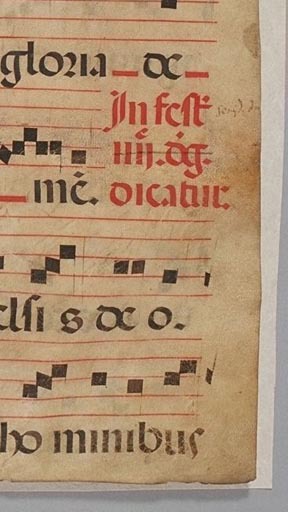 gloria de
In fest
iiij. dig.
mē. dicatur.
elsi s de o.
ho minibus